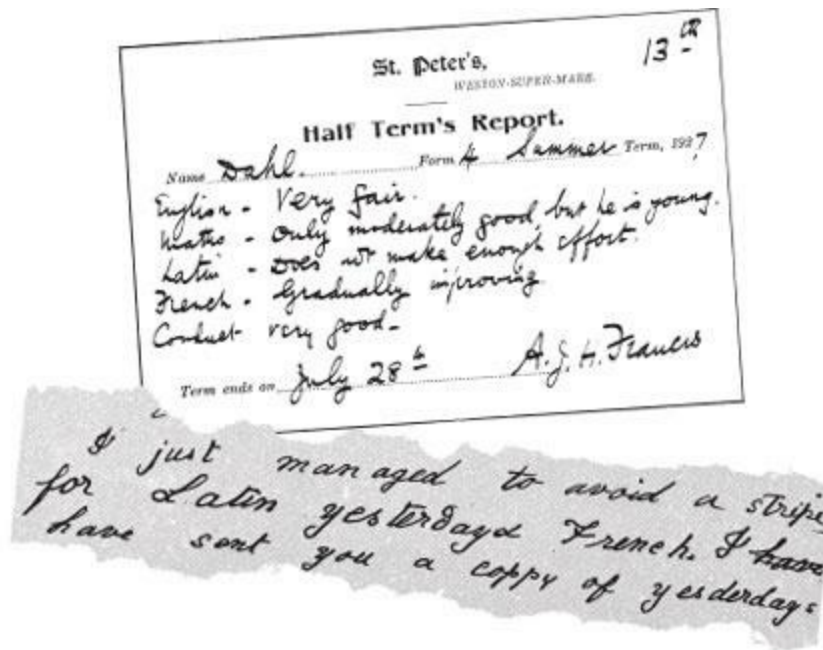 13th
St. Peter's,
WESTON-SUPER-MARE.
Half Term's Report.
Name Dahl. Form 4 Summer Term, 1927
English - Very fair.
Maths - Only moderately good, but he is young.
Latin - Does not make enough effort.
French - Gradually improving
Conduct very good -
Term ends on July 28th A. J. H. Francis
I just managed to avoid a stripe,
for Latin yesterday & French. I have
have sent you a coppy of yesderdays